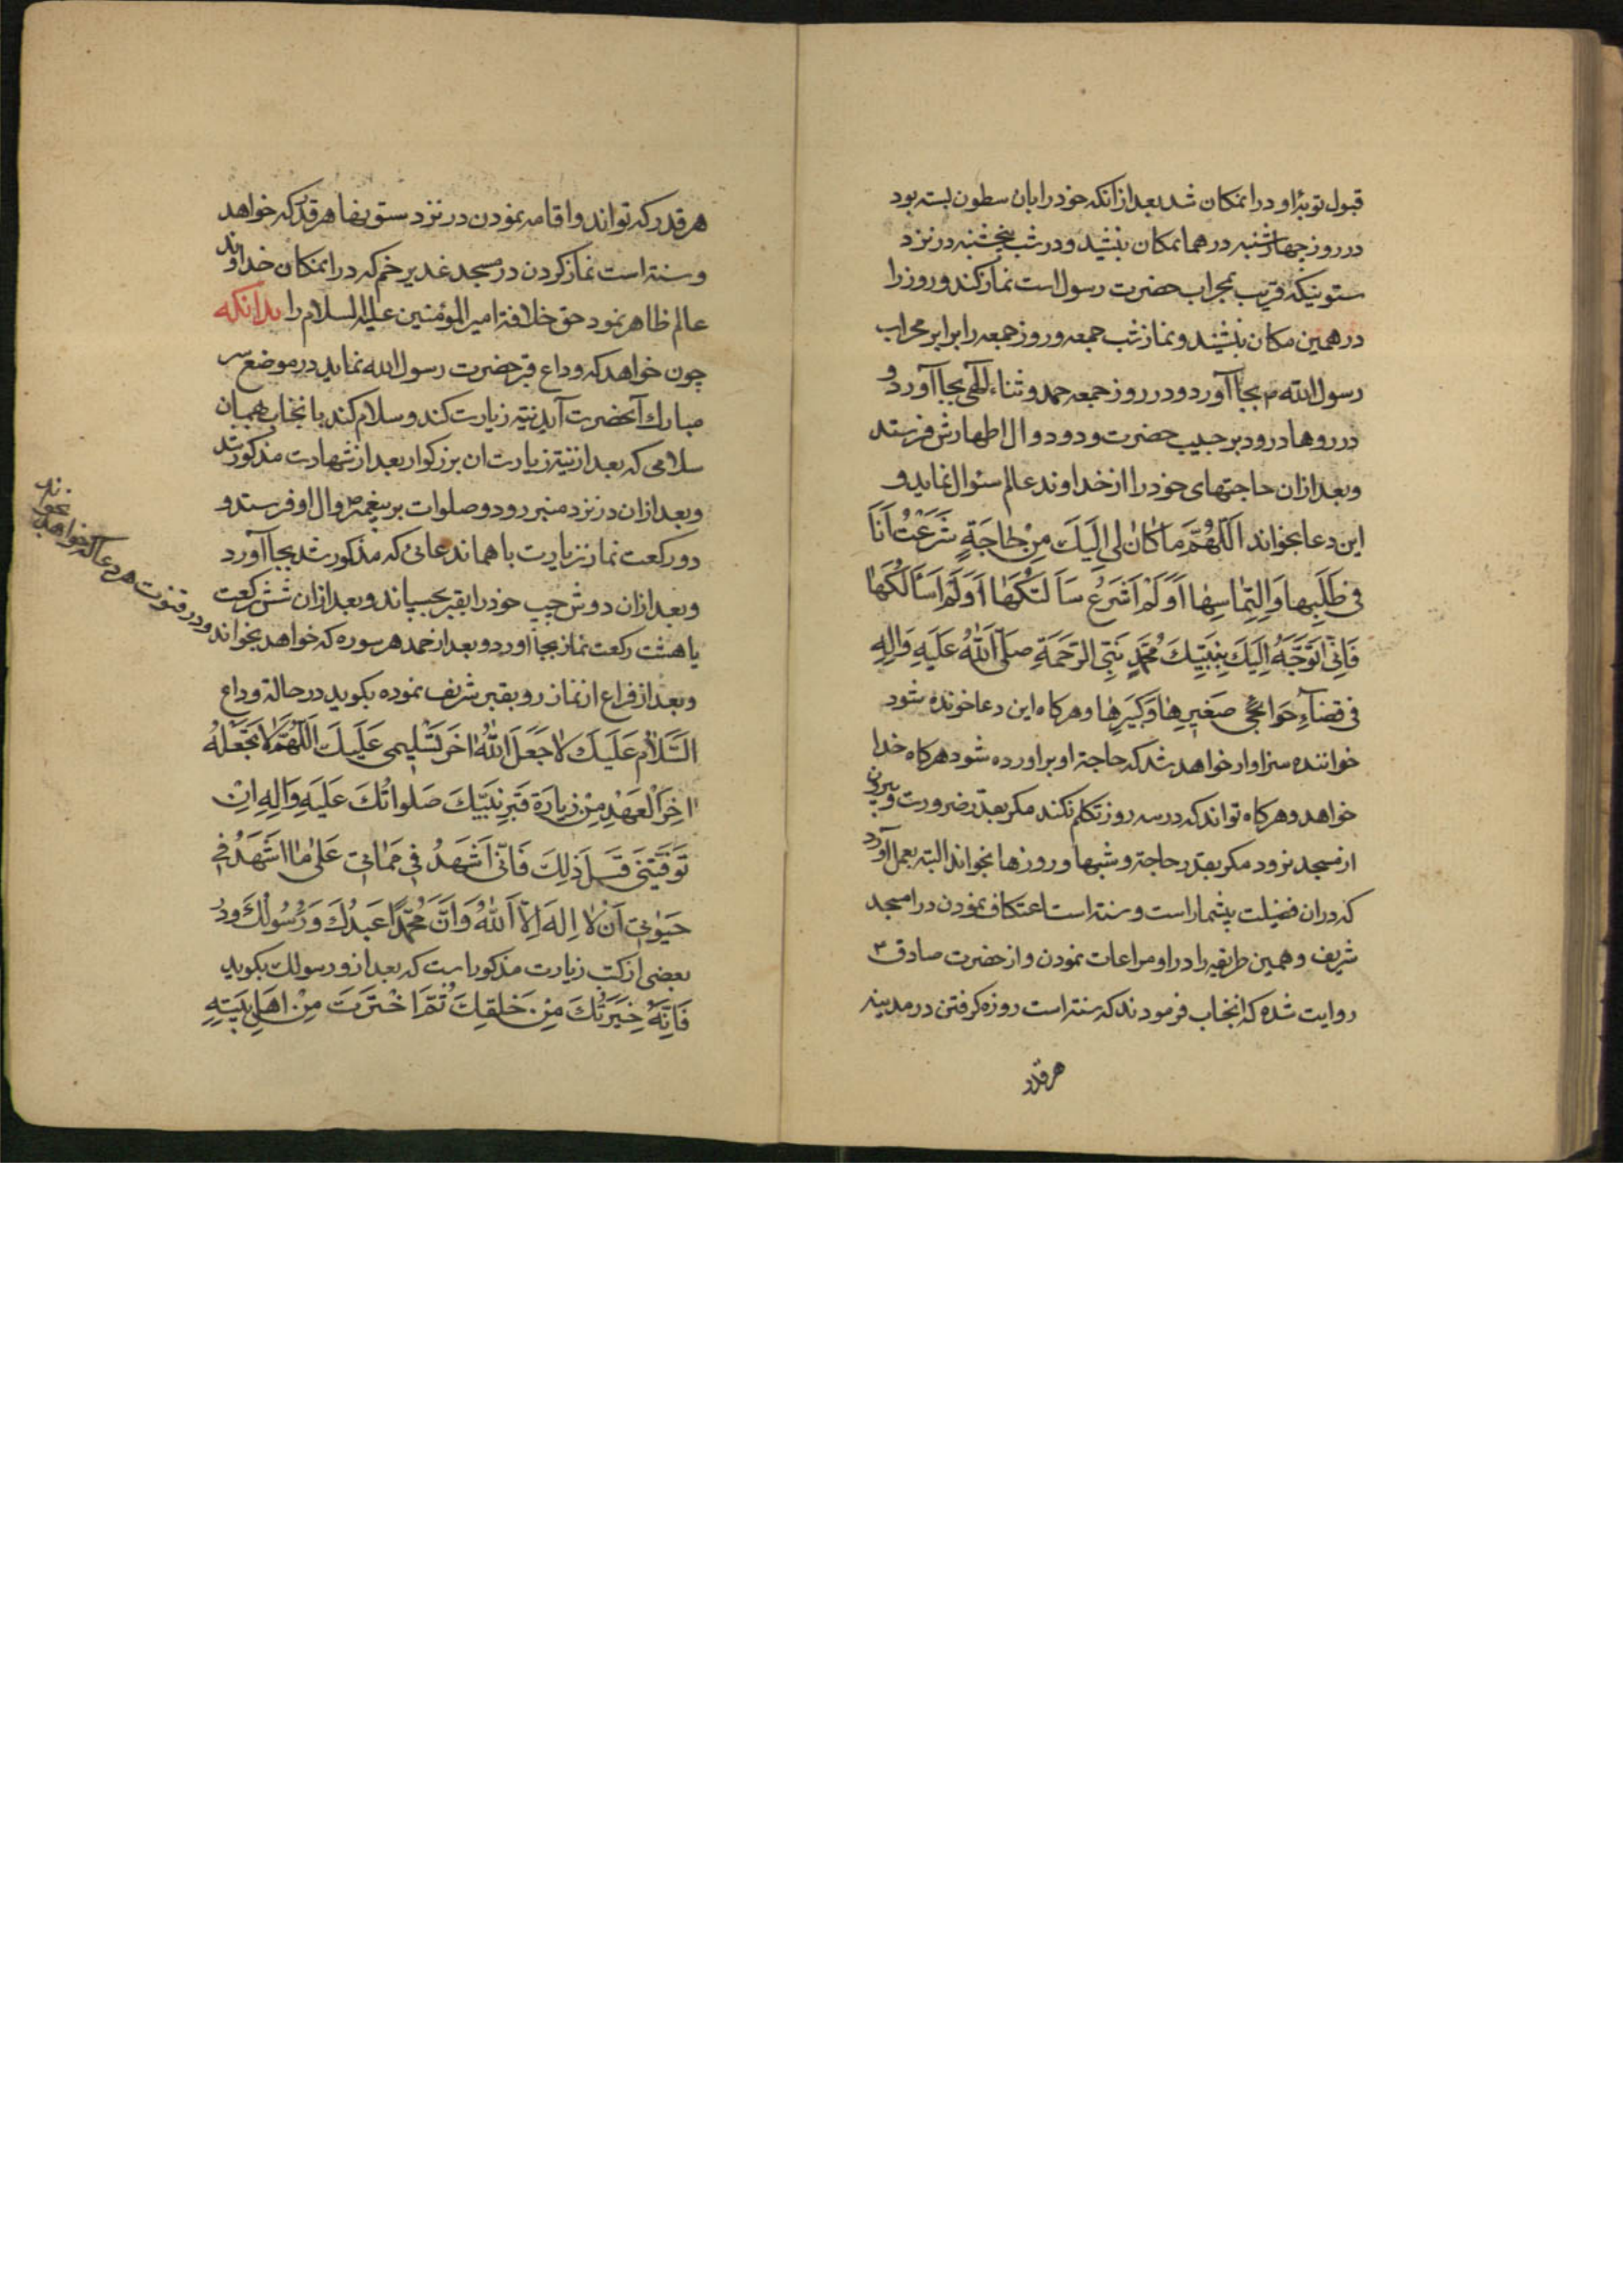 قبول توبهٔ او در انمکان شد بعد از انکه خود را بان سطون بسته بود
در روز چهارشنبه در همانمکان بنشیند و در شب پنجشنبه در نزد
ستونیکه قریب بمحراب حضرت رسول است نماز کند و روز را
در همین مکان بنشیند و نماز شب جمعه و روز جمعه را برابر محراب
رسول الله م بجا آورد و در روز جمعه حمد و ثناء الهی بجا آورد و
درروها درود بر حبیب حضرت ودود و ال اطهارش فرستد
و بعد از ان حاجتهای خود را از خداوند عالم سئوال نماید و
این دعا بخواند اَللّهُمَّ ما کانَ لی اِلَیکَ مِنْ حاجَةٍ شَرَعْتُ اَنَا
فی طَلَبِها وَ اِلتِماسِها اَوْ لَمْ اَشْرَعْ سَاَلتُکَها اَوْ لَمْ اَسْاَلکَها
فَاِنّی اَتَوَجَّهُ اِلَیکَ بِنَبِیِّکَ مُحَمَّدٍ نَبِیِّ الرَّحمَةِ صَلَّی اللهُ عَلَیهِ وَ الِهِ
فی قضاءِ حَوائجی صَغیرِها وَ کَبیرِها و هرکاه این دعا خونده شود
خواننده سزاوار خواهد شد که حاجة او براورده شود هرکاه خدا
خواهد و هرکاه تواند که در سه روز تکلم نکند مکر بقدر ضرورت و بیرون
از مسجد نرود مکر بقدر حاجة و شبها و روزها نخواند البته بعمل آورد
که در ان فضیلت بیشمار است و سنة است اعتکاف نمودن در امسجد
شریف و همین طریقه را در او مراعات نمودن و از حضرت صادق ۳
روایت شده که انجناب فرمودند که سنة است روزه کرفتن در مدینه
هر قدر
هر قدر که تواند و اقامه نمودن در نزد ستونها هر قدر که خواهد
و سنة است نماز کردن در مسجد غدیر خم که در انمکان خداوند
عالم ظاهر نمود حق خلافة امیر المؤمنین علیه السلام را بدانکه
چون خواهد که وداع قبر حضرت رسول الله نماید در موضع سر
مبارک آنحضرت آید نیة زیارت کند و سلام کند بانجناب همان
سلامی که بعد از نیة زیارت ان بزرکوار بعد از شهادت مذکور شد
و بعد از ان در نزد منبر رود و صلوات بر پیغمبر و ال او فرستد و
دو رکعت نماز زیارت با هماندعائی که مذکور شد بجا آورد
و بعد از ان دوش چپ خود را بقبر بچسپاند و بعد از ان شش رکعت
یا هشت رکعت نماز بجا اورد و بعد از حمد هر سوره که خواهد بخواند
و در قنوت هر دعا که خواهد بخواند
و بعد از فراغ از نماز رو بقبر شریف نموده بکوید در حالة وداع
اَلسَّلامُ عَلَیکَ لا جَعَلَ اللهُ اخَرَ تَسْلیمی عَلَیکَ اَللّهُمَّ لا تَجْعَلهُ
اخِرَ الْعَهْدِ مِنْ زِیارَةِ قَبرِ نَبِیِّکَ صَلَواتُکَ عَلَیهِ وَ الِهِ اِنْ
تَوَفَّیتَنی قَبلَ ذلِکَ فَاِنّی اَشْهَدُ فی مَماتی عَلی ما اَشْهَدُ فی
حَیوتی اَنْ لا اِلهَ اِلاّ اللهُ وَ اَنَّ مُحَمَّدًا عَبدُکَ وَ رَسُولُکَ و در
بعضی از کتب زیارت مذکور است که بعد از و رسولک بکوید
فَاِنَّهُ خِیَرَتُکَ مِنْ خَلقِکَ ثُمَّ اخْتَرتَ مِنْ اَهلِ بَیتِهِ